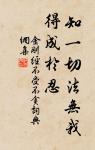 知一切法無我
得成於忍
金剛經不受不貪詞典
網集